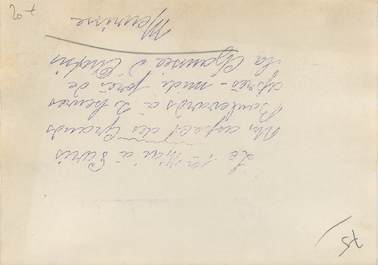 Le 1er Mai à Paris
Un aspect des Grands
Boulevards à 2 heures
après-midi près de
la Chaussée d'Antin
Meurisse
75